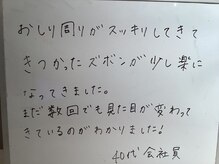 おしり周りがスッキリしてきて
きつかったズボンが少し楽に
なってきました。
まだ数回でも見た目が変わって
きているのがわかりました!
40代 会社員